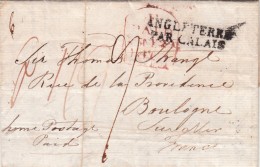 6
INGLETERRE
PAR CALAIS
Sir Thomas Strange
Rue de la Providence
Boulogne
sur Mer
home Postage
Paid
France